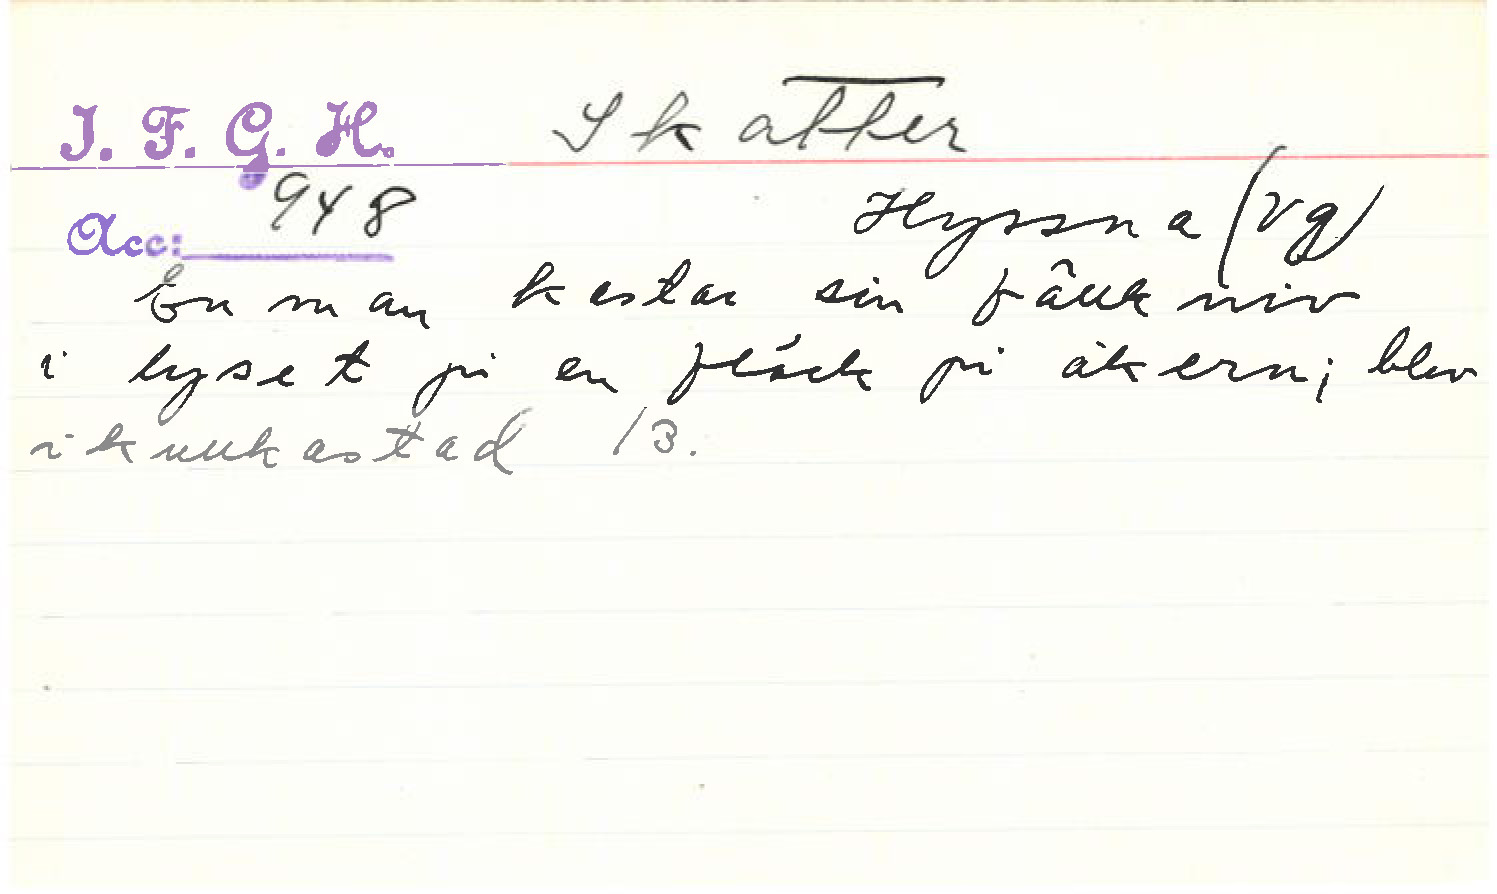 I. F. G. H. Skatter
Acc: 948 Hyssna (Vg)
En man kastar sin fällkniv
i lyset på en fläck på åkern; blev
ikullkastad 13.